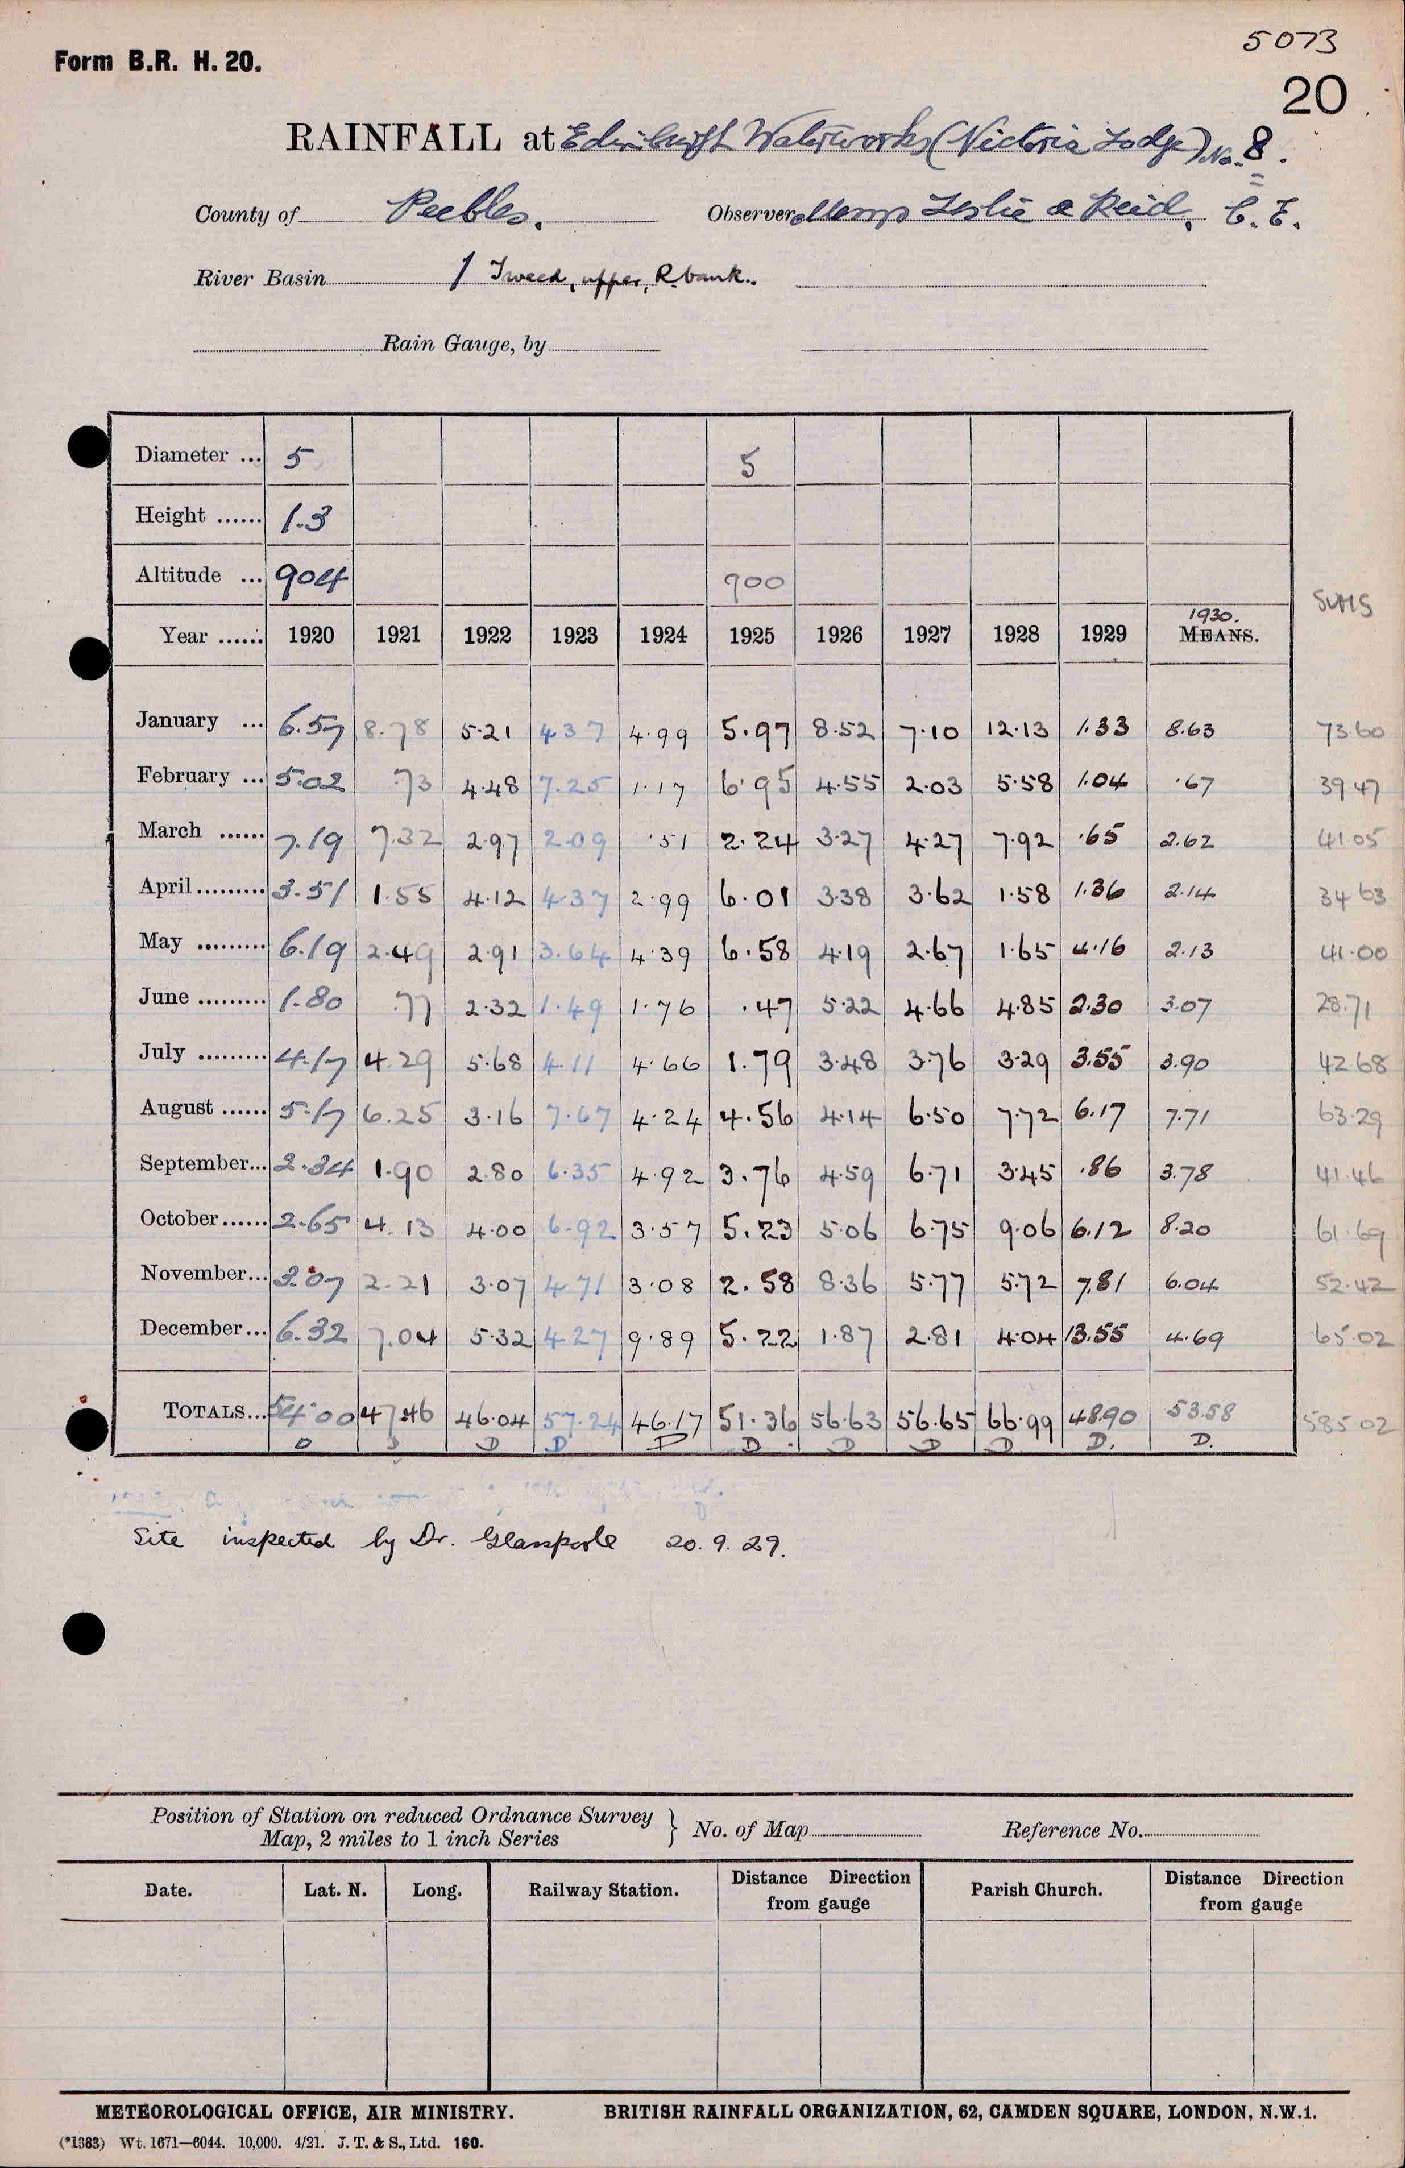 5073
Form B.R. H. 20.
20
RAINFALL at Edinburgh Waterworks (Victoria Lodge) No. 8.
County of Peebles. Observer Messrs Leslie & Reid, C.E.
River Basin / Tweed, upper, R. bank.
Rain Gauge, by
Diameter ... 5 5
Height ...... 1.3
Altitude ... 904 900
SUMS
1930.
Year ...... 1920 1921 1922 1923 1924 1925 1926 1927 1928 1929 MEANS.
January ... 6.57 8.78 5.21 4.37 4.99 5.97 8.52 7.10 12.13 1.33 8.63 73.60
February ... 5.02 .73 4.48 7.25 1.17 6.95 4.55 2.03 5.58 1.04 .67 39.47
March ...... 7.19 7.32 2.97 2.09 .51 2.24 3.27 4.27 7.92 .65 2.62 41.05
April ......... 3.51 1.55 4.12 4.37 2.99 6.01 3.38 3.62 1.58 1.36 2.14 34.63
May ......... 6.19 2.49 2.91 3.64 4.39 6.58 4.19 2.67 1.65 4.16 2.13 41.00
June ......... 1.80 .77 2.32 1.49 1.76 .47 5.22 4.66 4.85 2.30 3.07 28.71
July ......... 4.17 4.29 5.68 4.11 4.66 1.79 3.48 3.76 3.29 3.55 3.90 42.68
August ...... 5.17 6.25 3.16 7.67 4.24 4.56 4.14 6.50 7.72 6.17 7.71 63.29
September... 2.34 1.90 2.80 6.35 4.92 3.76 4.59 6.71 3.45 .86 3.78 41.46
October...... 2.65 4.13 4.00 6.92 3.57 5.23 5.06 6.75 9.06 6.12 8.20 61.69
November... 3.07 2.21 3.07 4.71 3.08 2.58 8.36 5.77 5.72 7.81 6.04 52.42
December... 6.32 7.04 5.32 4.27 9.89 5.22 1.87 2.81 4.04 13.55 4.69 65.02
TOTALS... 54.00 47.46 46.04 57.24 46.17 51.36 56.63 56.65 66.99 48.90 53.58 585.02
D D D D D D D D D D. D.
Site inspected by Dr. Glasspoole 20.9.29.
Position of Station on reduced Ordnance Survey
Map, 2 miles to 1 inch Series } No. of Map Reference No.
Date. Lat. N. Long. Railway Station. Distance Direction from gauge Parish Church. Distance Direction from gauge
METEOROLOGICAL OFFICE, AIR MINISTRY. BRITISH RAINFALL ORGANIZATION, 62, CAMDEN SQUARE, LONDON, N.W.1.
(*1383) Wt. 1671—6044. 10,000. 4/21. J. T. & S., Ltd. 160.